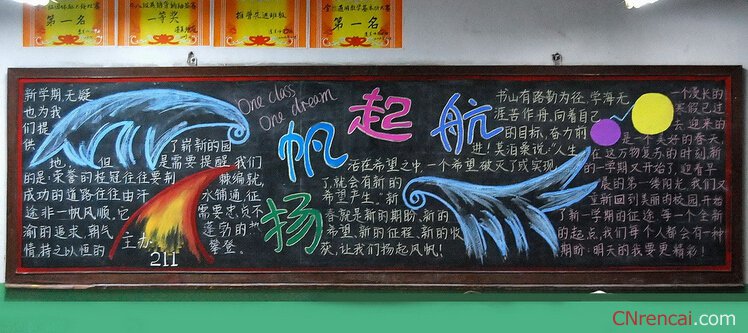 第一名
一等奖
第一名
One class
One dream
扬帆起航
新学期,无疑
也为我
们提
供 了崭新的园
地。但 是需要提醒我们
的是:荣誉的桂冠往往要荆 棘编就,
成功的道路往往由汗 水铺通,征
途非一帆风顺,它 需要忠贞不
渝的追求,朝气 蓬勃的
情,持之以恒的 攀登。
主办
211
书山有路勤为径,学海无
涯苦作舟,向着自己
的目标,奋力前
进!莫泊桑说:"人生
活在希望之中,一个希望破灭了或实现
了,就会有新的
希望产生。"新
春就是新的期盼、新的
希望、新的征程、新的收
获,让我们扬起风帆!
一个漫长的
寒假已过
去,迎来的
是一个美好的春天,
在这万物复苏的时刻,新
的一学期又开始了,迎着早
晨的第一缕阳光,我们又
重新回到美丽的校园,开始
了新一学期的征途,每一个全新
的起点,我们每个人都会有一种
期盼:明天的我要更精彩!
CNrencai.com